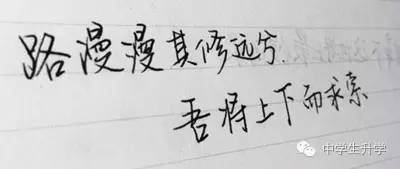 路漫漫其修远兮.
吾将上下而求索
中学生升学